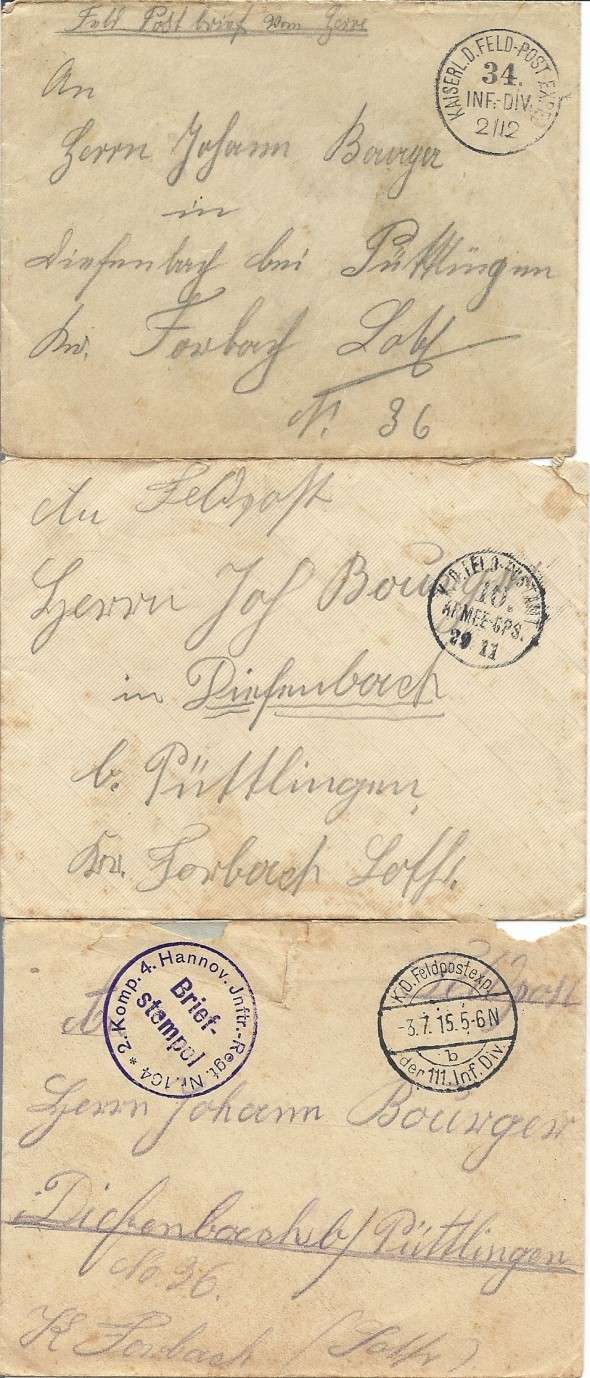 Feld Post brief vom Heere
KAISERL. D. FELD-POST EXPED
34.
INF.-DIV.
2/12
An
Herrn Johann Bourger
in
Diefenbach bei Püttlingen
Kr. Forbach Loth
N: 36
An Feldpost
K. D. FELD-POSTAMT
10.
ARMEE-CPS.
29 11
Herrn Joh Bourger
in Diefenbach
b. Püttlingen
Kr. Forbach Lothr.
2. Komp. 4. Hannov. Jnftr.-Regt. Nr. 164 *
Brief-
stempel
K. D. Feldpostexp.
-3.7.15.5-6N
b
der 111. Inf. Div.
Feldpost
Herrn Johann Bourger
Diefenbach b/ Püttlingen
No. 36.
K Forbach (Lothr)